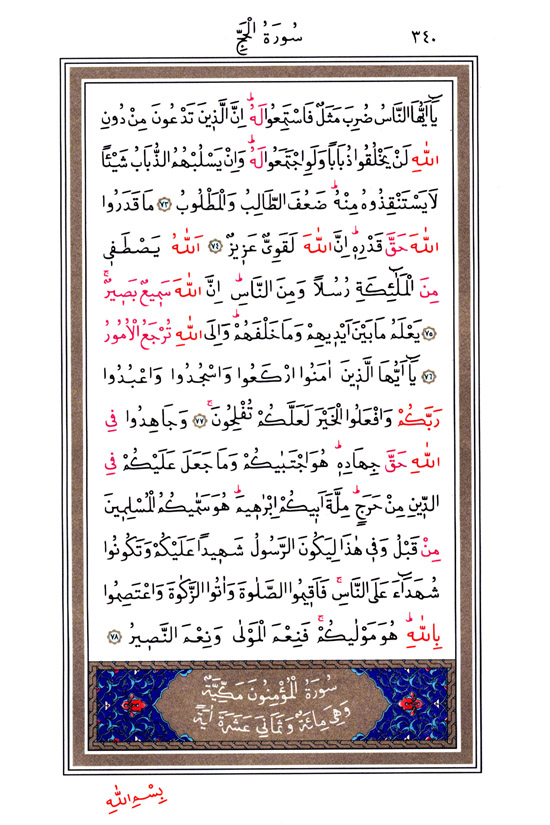 ٣٤٠ سُورَةُ الْحَجِّ
يَٓا اَيُّهَا النَّاسُ ضُرِبَ مَثَلٌ فَاسْتَمِعُوا لَهُۜ اِنَّ الَّذ۪ينَ تَدْعُونَ مِنْ دُونِ
اللّٰهِ لَنْ يَخْلُقُوا ذُبَاباً وَلَوِ اجْتَمَعُوا لَهُۜ وَاِنْ يَسْلُبْهُمُ الذُّبَابُ شَيْـٔاً
لَا يَسْتَنْقِذُوهُ مِنْهُۜ ضَعُفَ الطَّالِبُ وَالْمَطْلُوبُ ﴿٧٣﴾ مَا قَدَرُوا
اللّٰهَ حَقَّ قَدْرِه۪ۜ اِنَّ اللّٰهَ لَقَوِيٌّ عَز۪يزٌ ﴿٧٤﴾ اَللّٰهُ يَصْطَف۪ي
مِنَ الْمَلٰٓئِكَةِ رُسُلاً وَمِنَ النَّاسِۜ اِنَّ اللّٰهَ سَم۪يعٌ بَص۪يرٌۚ
﴿٧٥﴾ يَعْلَمُ مَا بَيْنَ اَيْد۪يهِمْ وَمَا خَلْفَهُمْۜ وَاِلَى اللّٰهِ تُرْجَعُ الْاُمُورُ
﴿٧٦﴾ يَٓا اَيُّهَا الَّذ۪ينَ اٰمَنُوا ارْكَعُوا وَاسْجُدُوا وَاعْبُدُوا
رَبَّكُمْ وَافْعَلُوا الْخَيْرَ لَعَلَّكُمْ تُفْلِحُونَۚ ﴿٧٧﴾ وَجَاهِدُوا فِي
اللّٰهِ حَقَّ جِهَادِه۪ۜ هُوَ اجْتَبٰيكُمْ وَمَا جَعَلَ عَلَيْكُمْ فِي
الدّ۪ينِ مِنْ حَرَجٍۜ مِلَّةَ اَب۪يكُمْ اِبْرٰه۪يمَۜ هُوَ سَمّٰيكُمُ الْمُسْلِم۪ينَ
مِنْ قَبْلُ وَف۪ي هٰذَا لِيَكُونَ الرَّسُولُ شَه۪يداً عَلَيْكُمْ وَتَكُونُوا
شُهَدَٓاءَ عَلَى النَّاسِۚ فَاَق۪يمُوا الصَّلٰوةَ وَاٰتُوا الزَّكٰوةَ وَاعْتَصِمُوا
بِاللّٰهِۜ هُوَ مَوْلٰيكُمْۚ فَنِعْمَ الْمَوْلٰى وَنِعْمَ النَّص۪يرُ ﴿٧٨﴾
سُورَةُ الْمُؤْمِنُونَ مَكِّيَّةٌ
وَهِيَ مِائَةٌ وَثَمَانِيَ عَشْرَةَ اٰيَةً
بِسْمِ اللّٰهِ